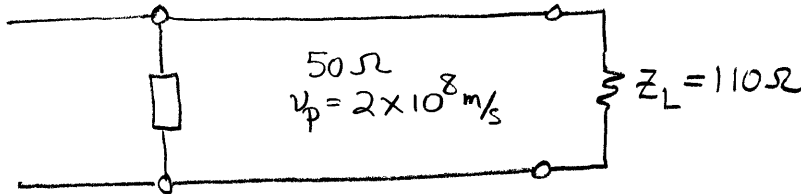 50Ω
νp = 2×10⁸ m/s
Z_L = 110Ω